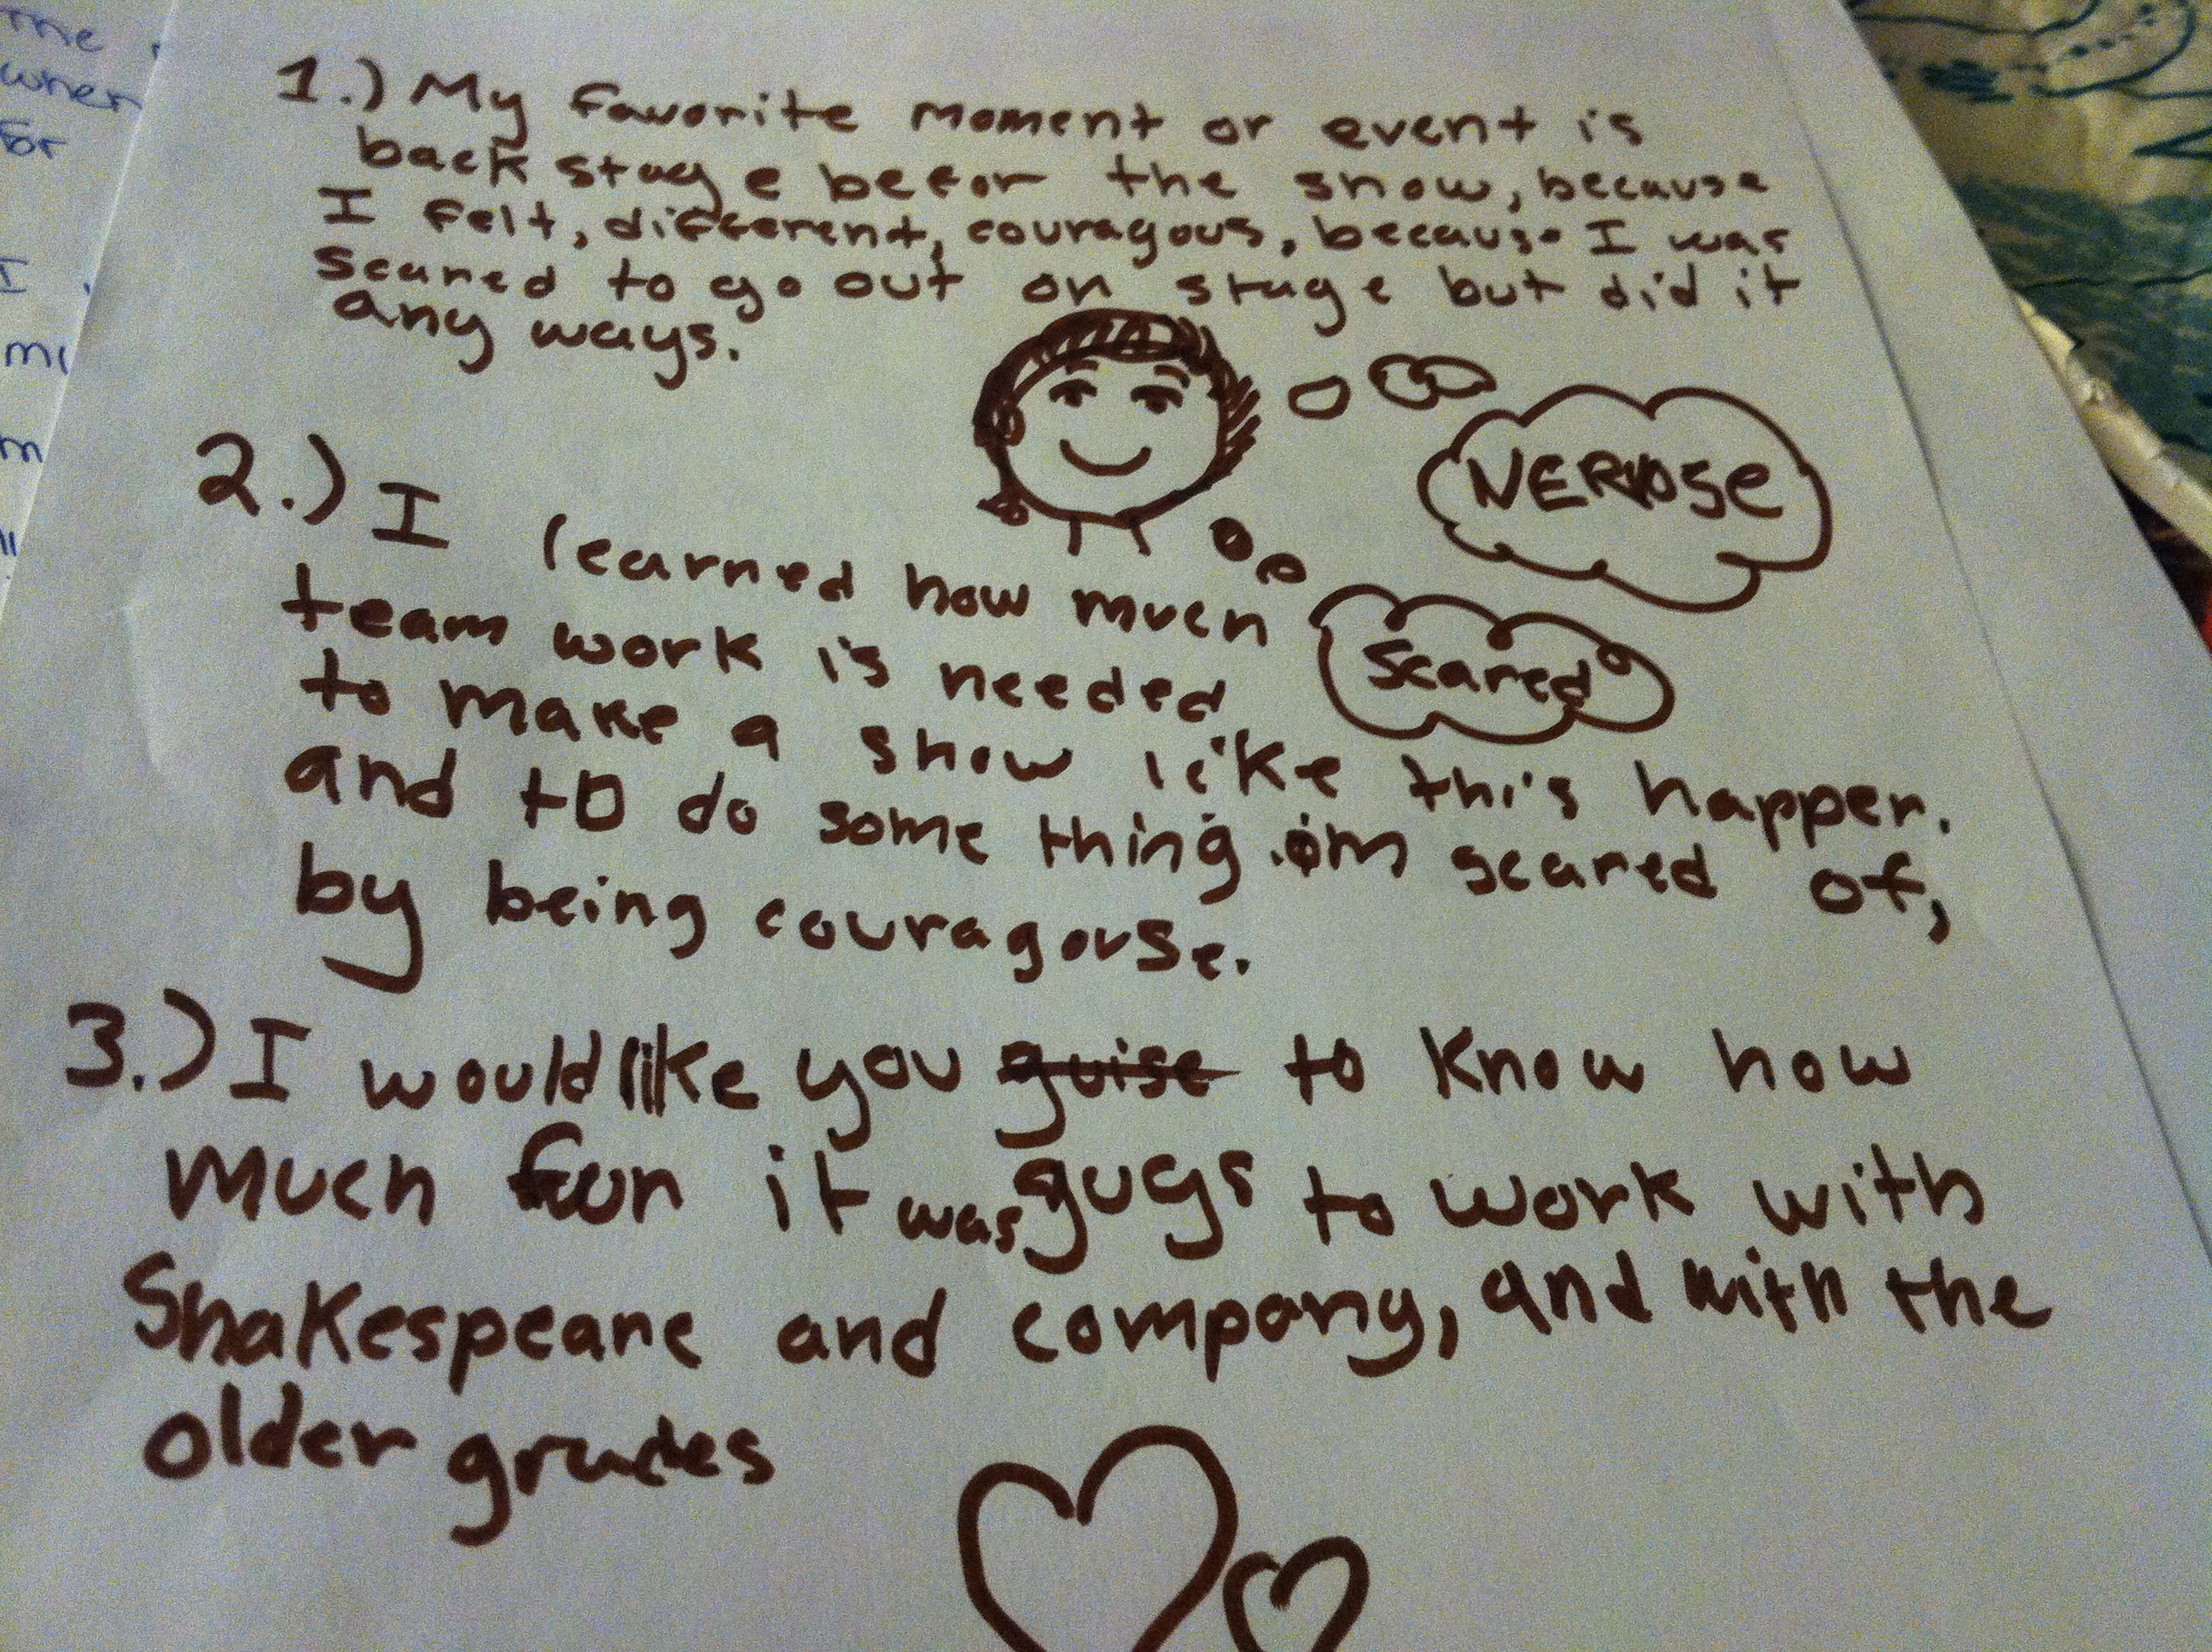 1.) My favorite moment or event is
back stage befor the show, because
I felt, different, couragous, because I was
scared to go out on stage but did it
any ways.
NERVOSe
2.) I learned how much
team work is needed
scared
to make a show like this happen.
and to do some thing im scared of,
by being couragouse.
3.) I would like you guise to know how
much fun it was guys to work with
Shakespeare and company, and with the
older grades
the
when
for
I
m